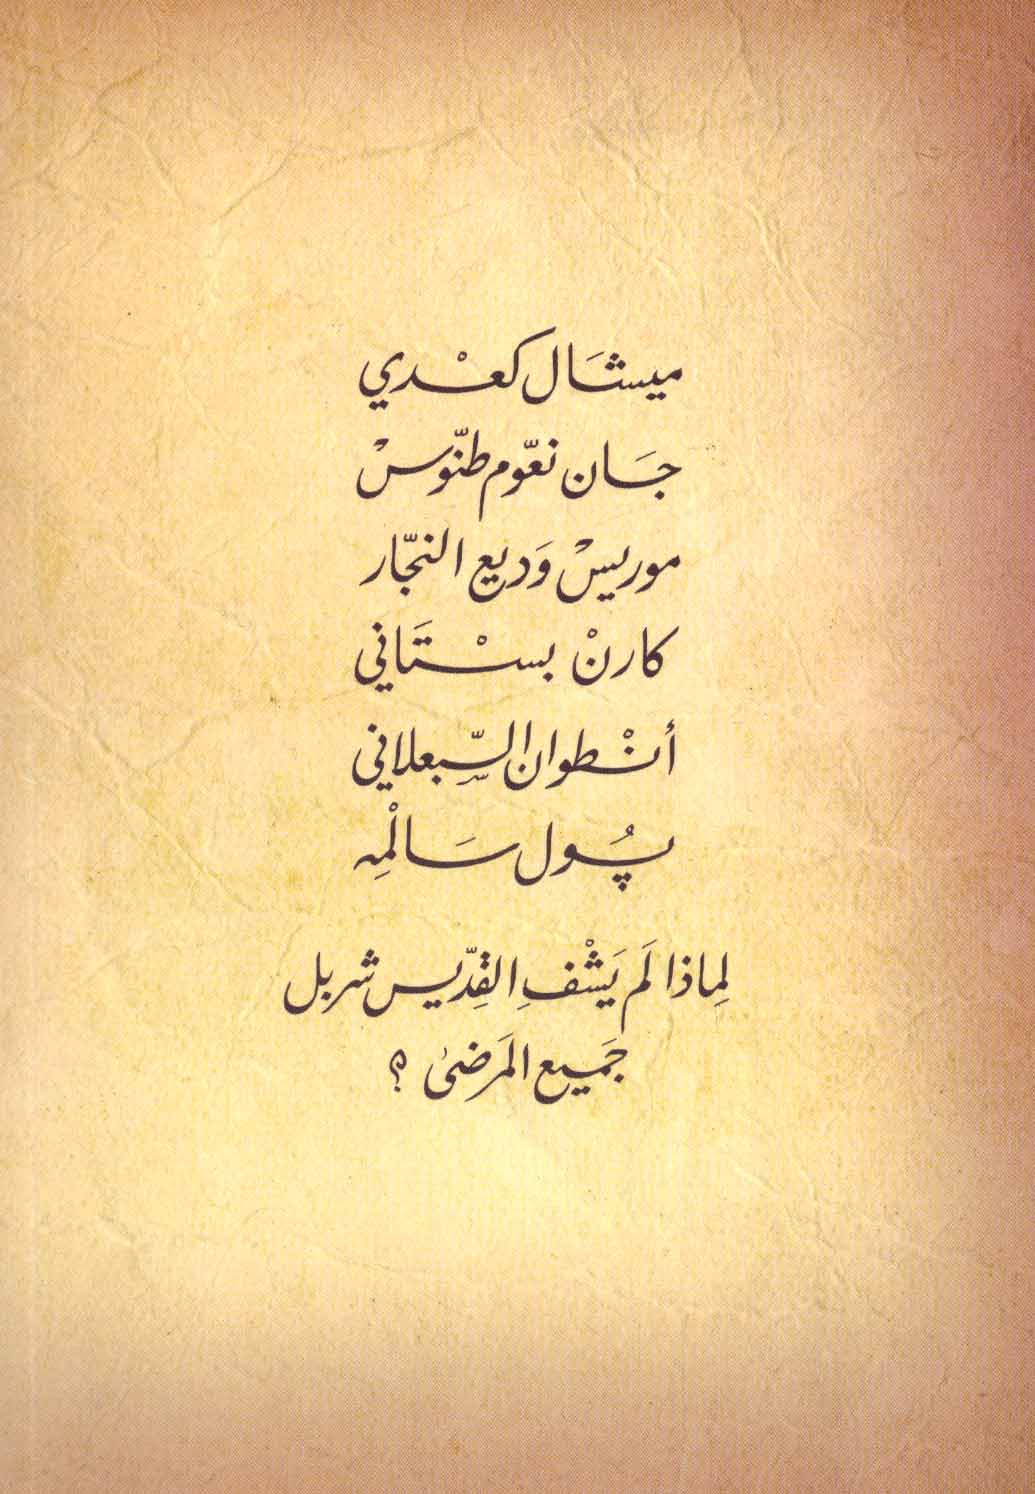 ميشَال كعْدي
جَان نعّوم طنّوسْ
موريسْ وَديع النجّار
كارنْ بسْتَاني
أنْطوان السّبعلاني
پُول سَالْمِه
لِماذا لَم يَشْفِ القِدّيس شربل
جَميع المَرضىٰ ؟